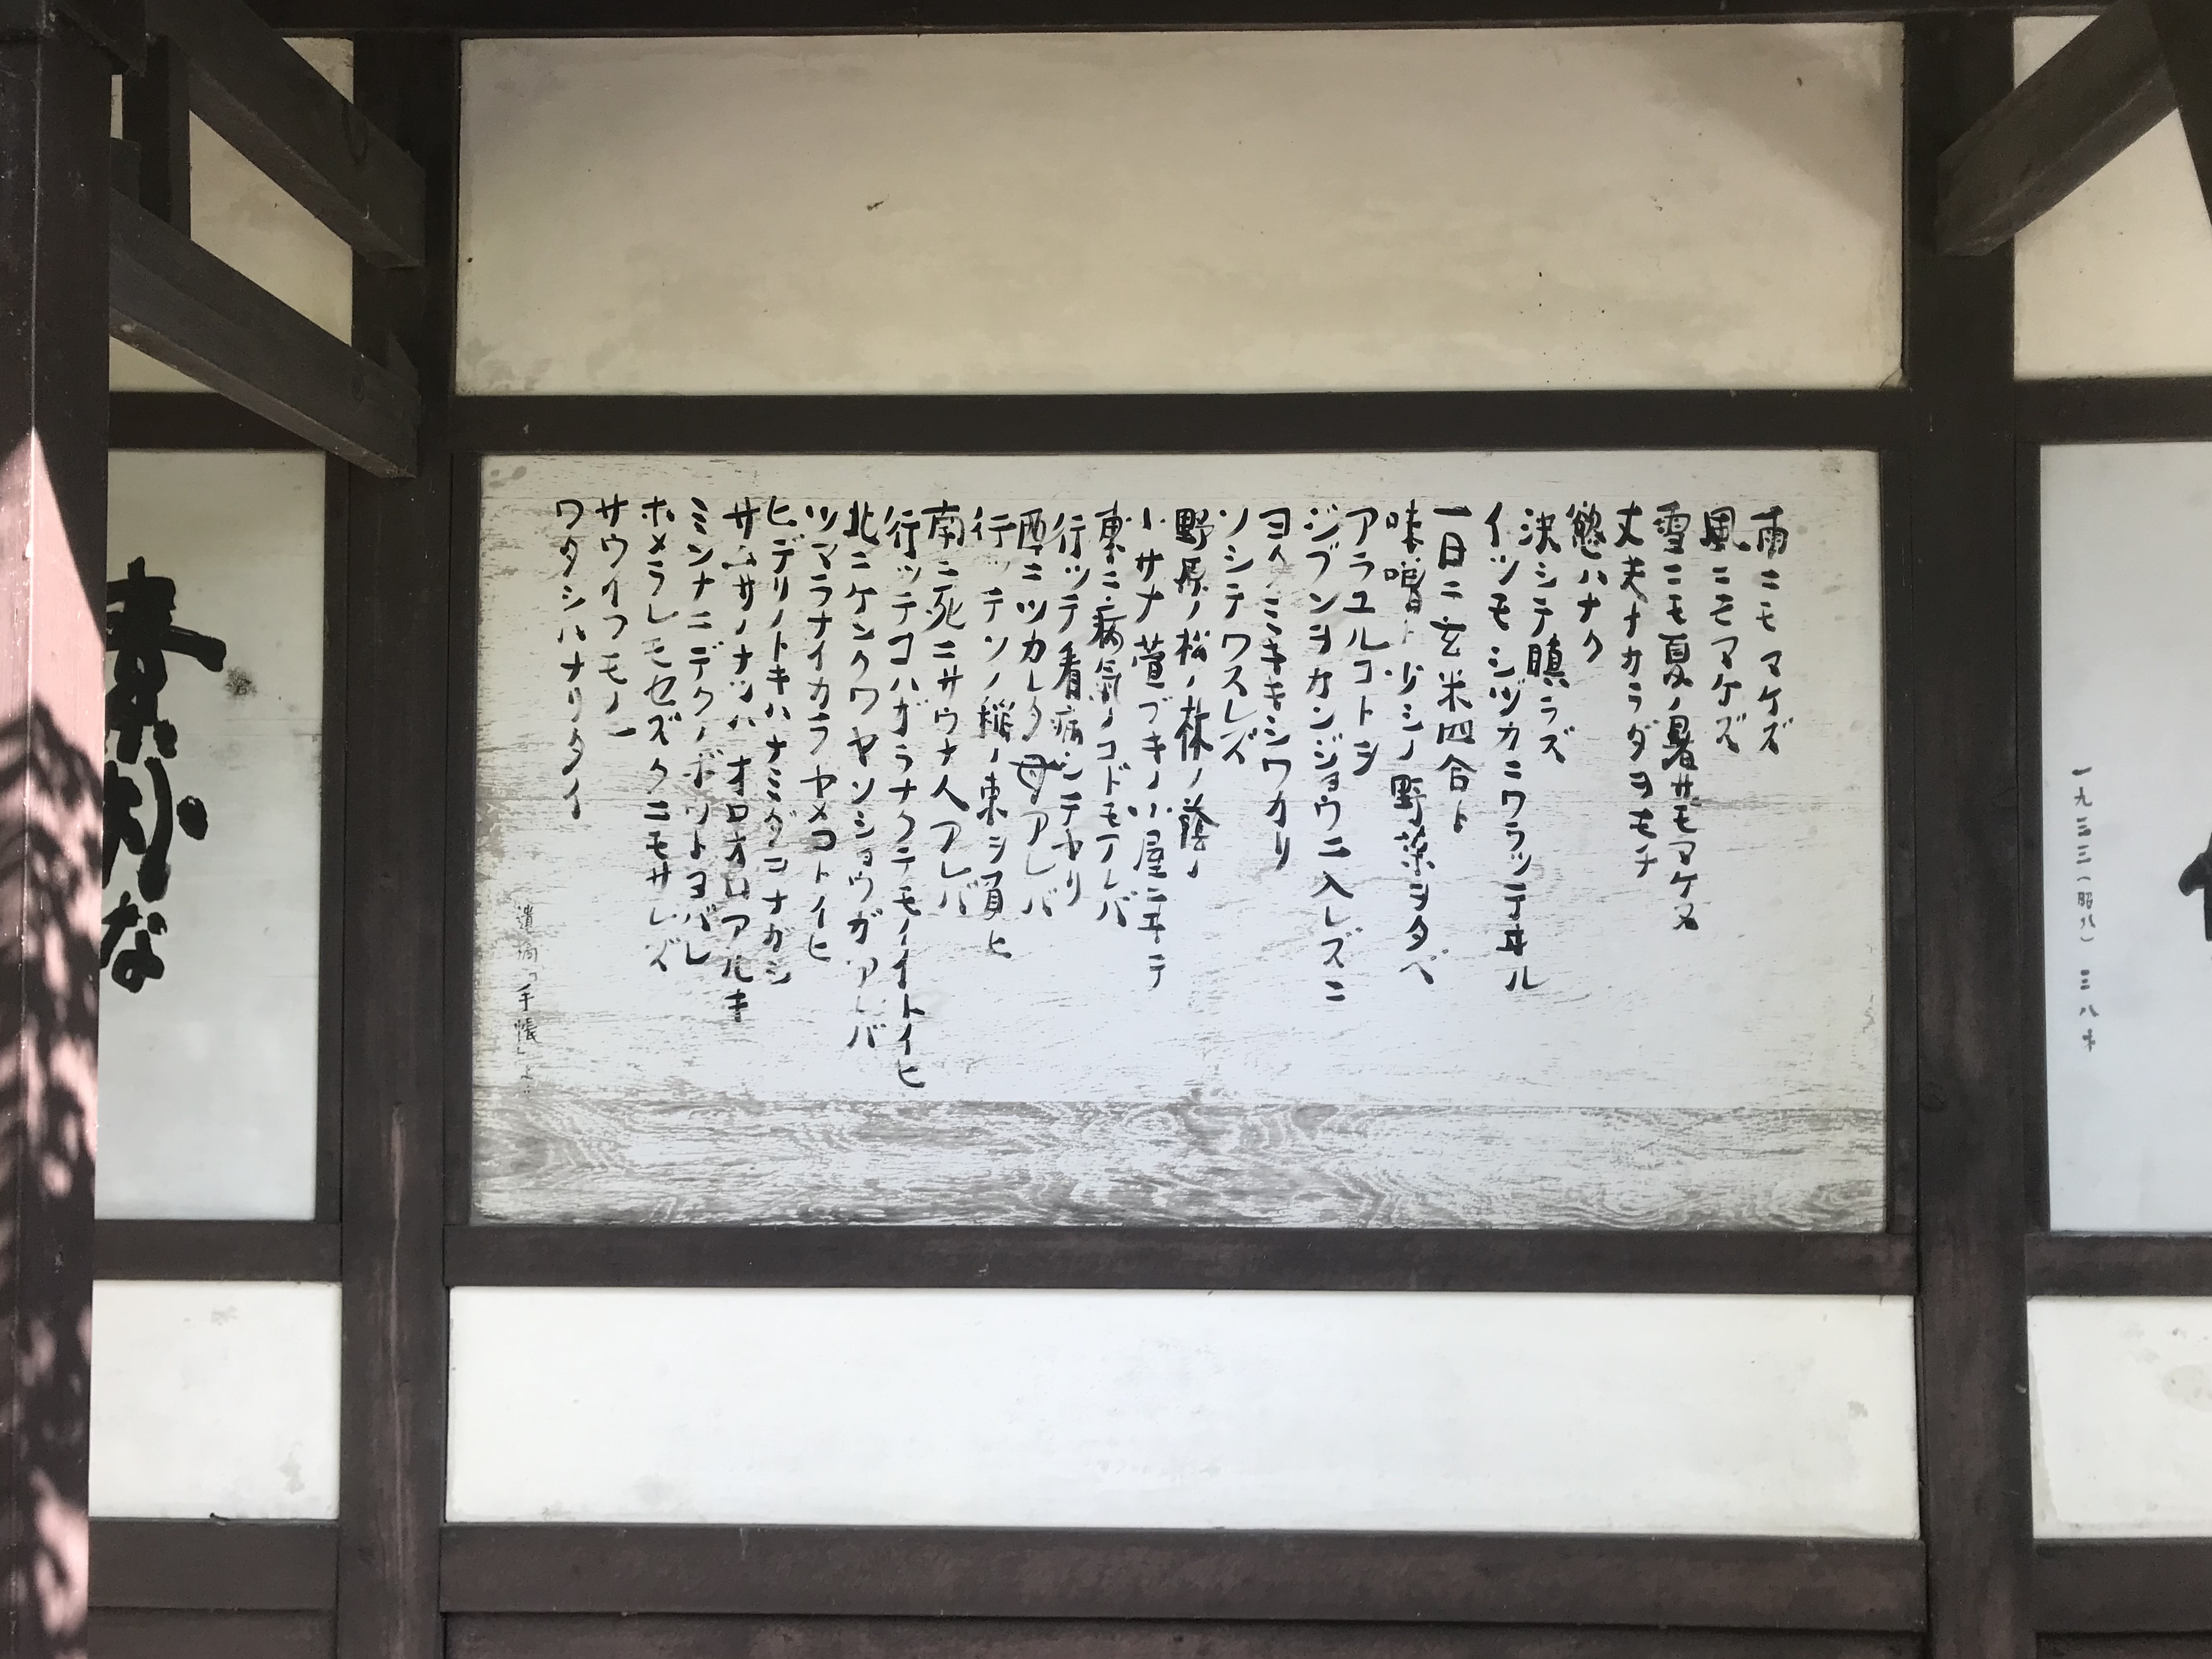 一九三三（昭八）三八才
雨ニモマケズ
風ニモマケズ
雪ニモ夏ノ暑サニモマケヌ
丈夫ナカラダヨモチ
慾ハナク
決シテ瞋ラズ
イツモシヅカニワラッテヰル
一日ニ玄米四合ト
味噌ト少シノ野菜ヨタベ
アラユルコトヨ
ジブンヨカンジョウニ入レズニ
ヨクミキキシワカリ
ソシテワスレズ
野原ノ松ノ林ノ蔭ノ
小サナ萓ブキノ小屋ニヰテ
東ニ病氣ノコドモアレバ
行ッテ看病シテヤリ
西ニツカレタ母アレバ
行ッテソノ稲ノ束ヨ負ヒ
南ニ死ニサウナ人アレバ
行ッテコハガラナクテモイイトイヒ
北ニケンクワヤソショウガアレバ
ツマラナイカラヤメロトイヒ
ヒデリノトキハナミダヨナガシ
サムサノナツハオロオロアルキ
ミンナニデクノボウトヨバレ
ホメラレモセズクニモサレズ
サウイフモノニ
ワタシハナリタイ
遺稿「手帳」より
素朴な